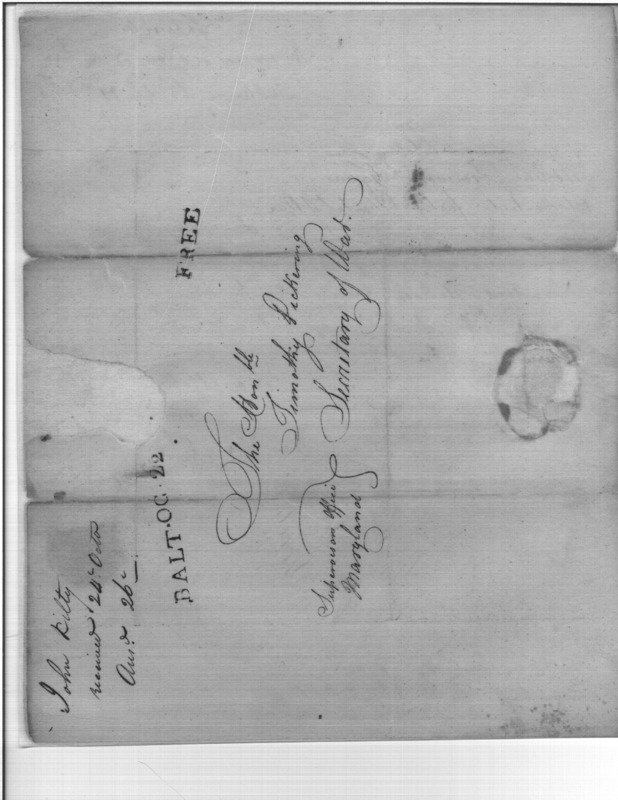 John Kilty
received 24th Octor
Ansd. 26th
BALT. OC. 22.
FREE
The Honble
Timothy Pickering
Secretary of War.
Supervisors Office
Maryland